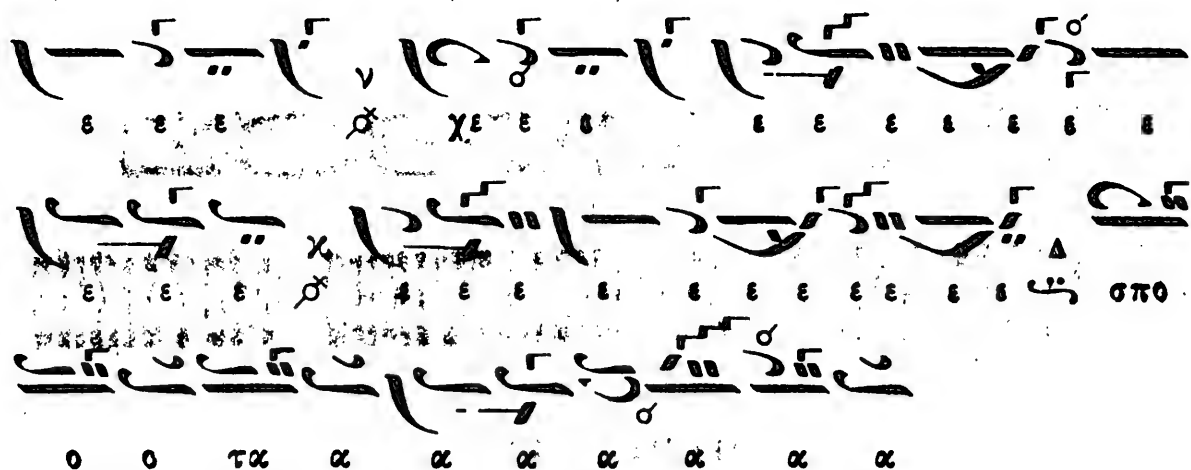 ε ε ε ν χε ε ε ε ε ε ε ε ε ε
ε ε ε ε ε ε ε ε ε ε ε ε ε ε Δ σπο
ο ο τα α α α α α α α